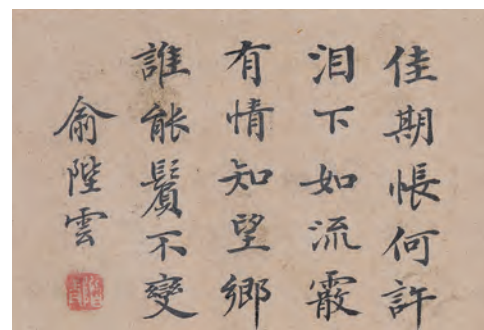 佳期悵何許
泪下如流霰
有情知望鄉
誰能鬢不變
俞陛雲